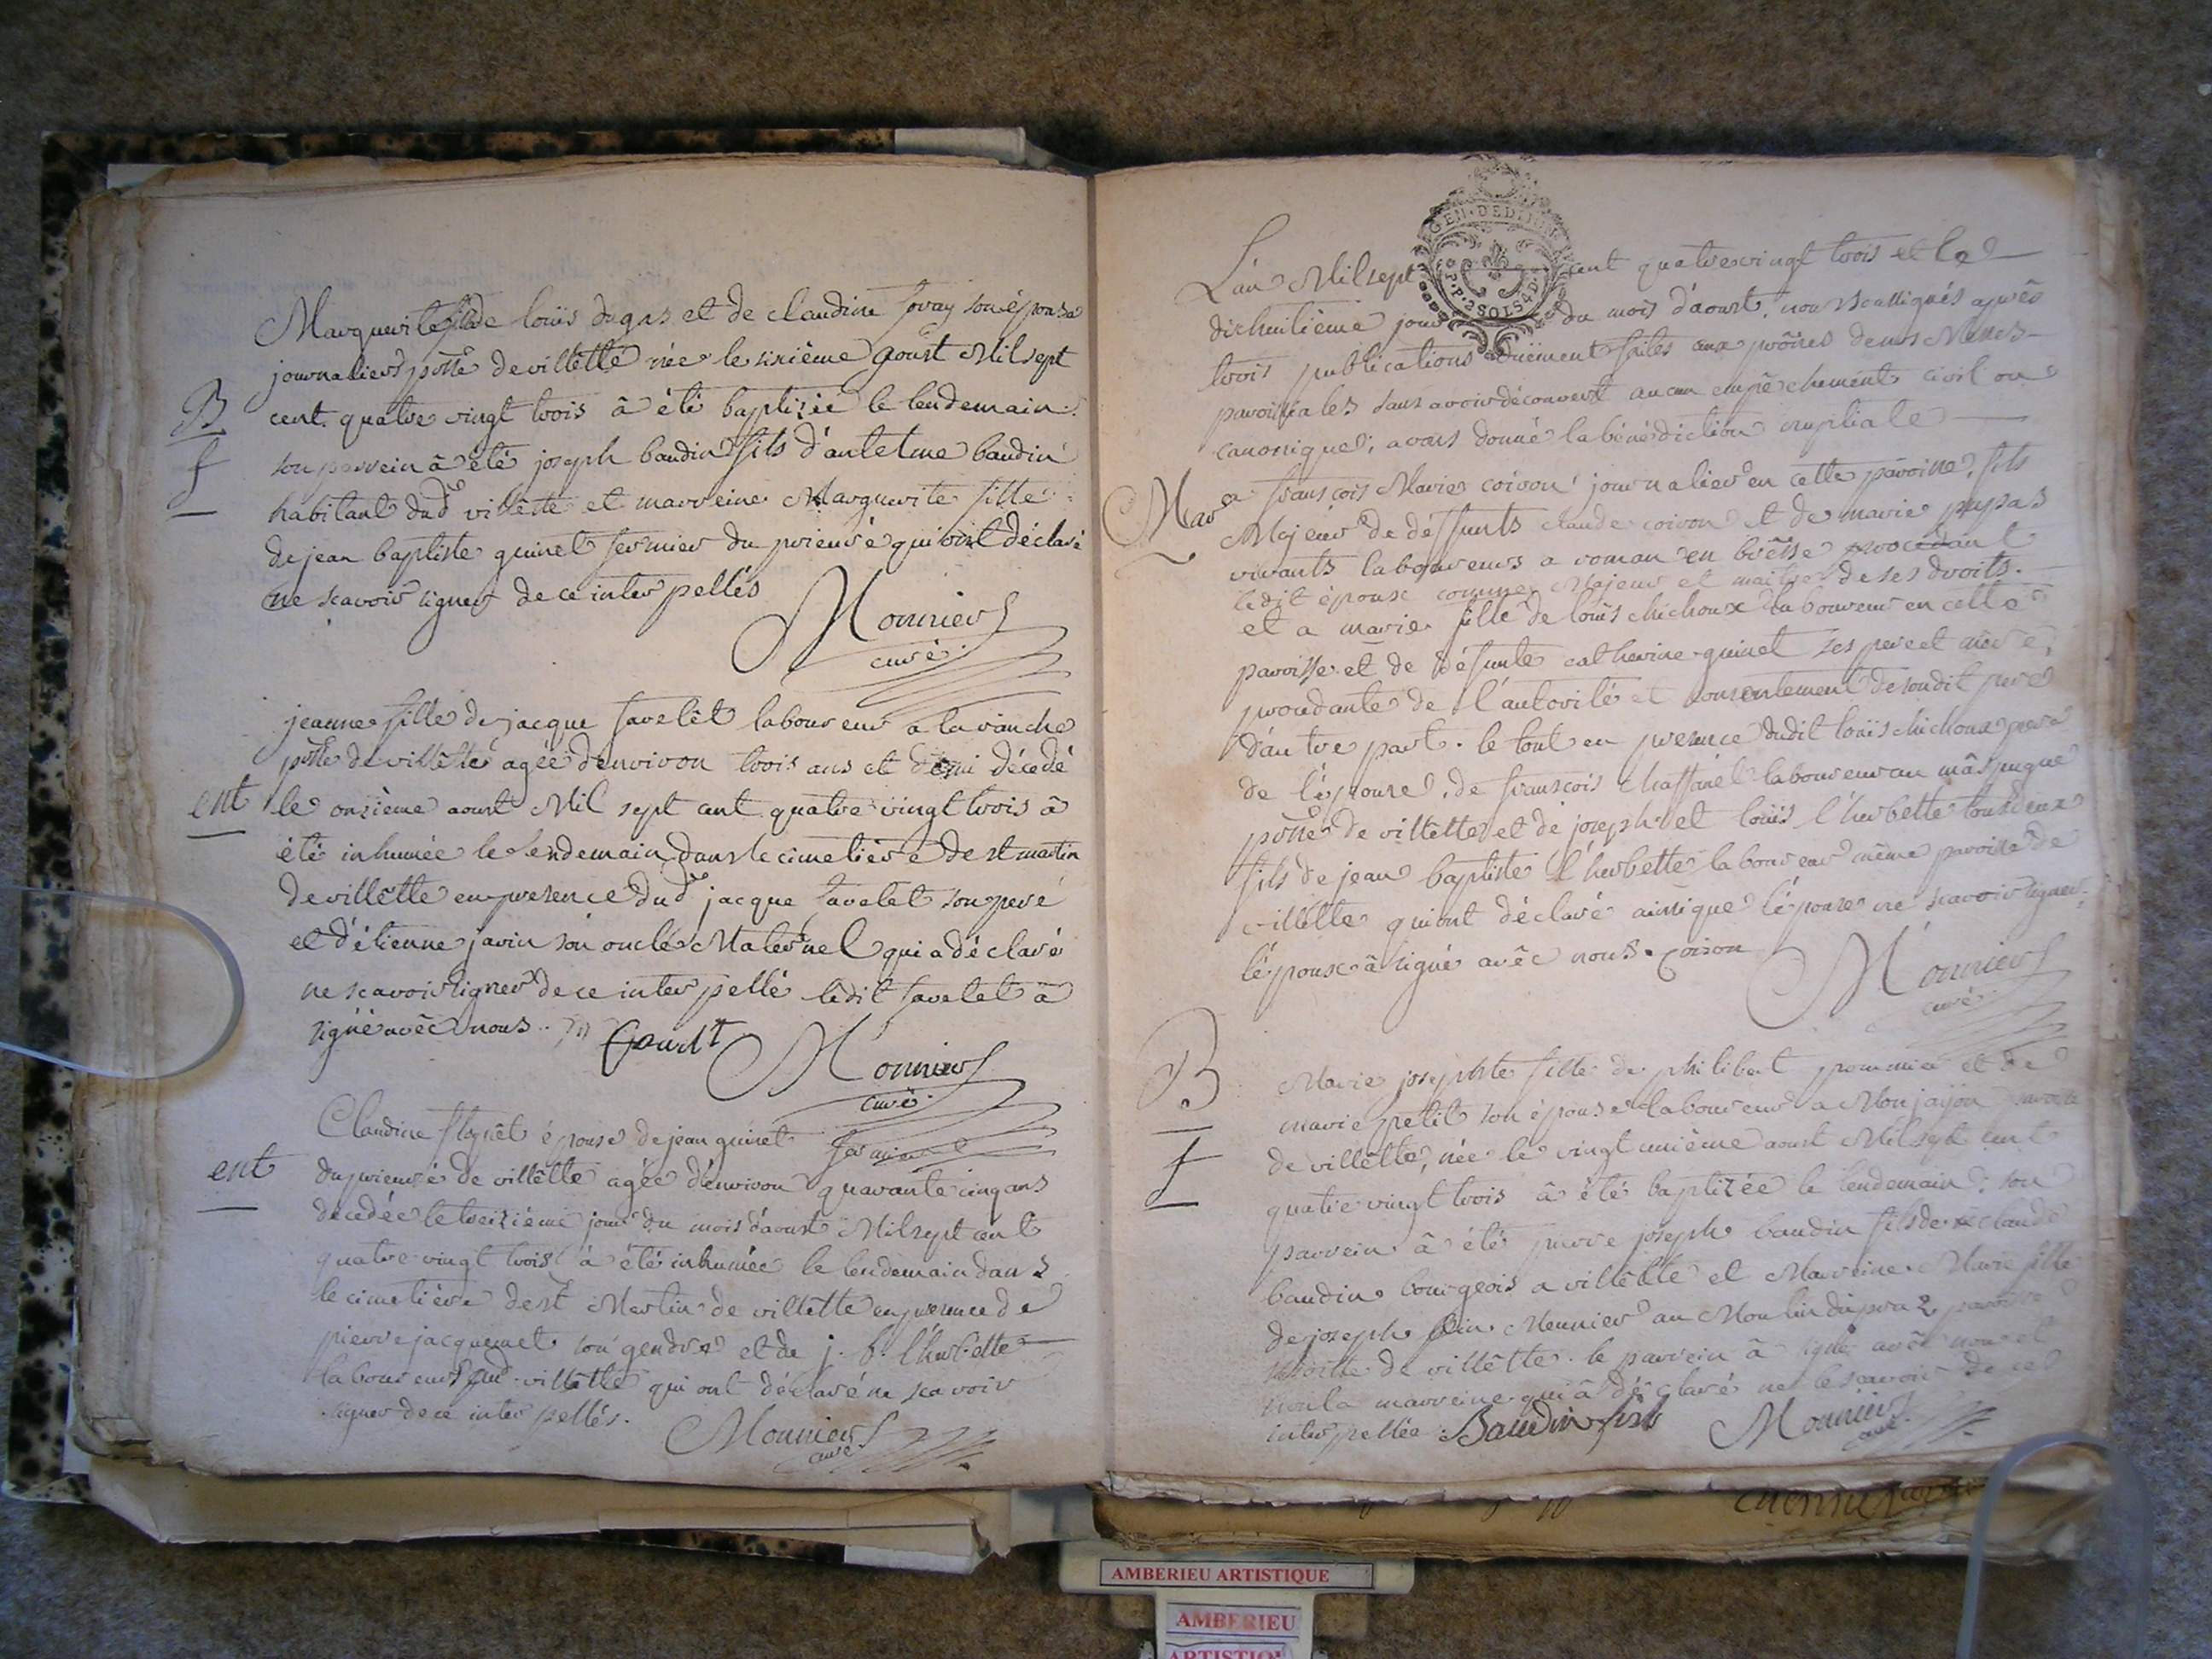 Marguerite fille de loüis dugas et de claudine son épouse
journaliers psse de villêtte née le sixième Aoust Mil sept
B cent quatre vingt trois â été baptizée le lendemain.
f son parrein â été joseph baudin fils d'antelme baudin
habitant dud villette et marreine Marguerite fille
de jean baptiste quinet fermier du prieuré qui ont déclaré
ne scavoir signer de ce interpellés
Monnier
curé.
jeanne fille de jacque favelêt laboureur a la ranche
psse de villêtte agée d'environ trois ans et demi décedé
ent le onzième aoust Mil sept cent quatre vingt trois â
été inhumée le lendemain dans le cimetière de st martin
de villêtte en presence dud jacque favelet son pere
et d'étienne javin son oncle Maternel qui a déclaré
ne scavoir signer de ce interpellé ledit favelet â
signé avêc nous.
Monnier
curé.
Claudine épouse de jean quinet fermier
ent du prieuré de villêtte agée d'environ quarante cinq ans
décedée le treizième jour du mois d'aoust Mil sept cent
quatre vingt trois â été inhumée le lendemain dans
le cimetière de st Martin de villêtte en presence de
pierre jacquemet son gendre et de j. b. l'herbette
laboureurs villêtte qui ont déclaré ne scavoir
signer de ce interpellés.
Monnier
curé.
GEN. DE DIJON
2 SOLS 4 D.
L'an Mil sept cent quatre vingt trois et le
dixhuitième jour du mois d'aoust, nous soussignés après
trois publications düement faites aux prônes de nos Messes
paroissiales sans avoir découvert aucun empêchement civil ou
canonique, avons donné la bénédiction nuptiale
Mar a françois Marie coison journalier en cette paroisse, fils
Majeur de deffunts claude coison et de marie pupas
vivants laboureurs a roman en brêsse procedant
ledit époux comme Majeur et maitre de ses droits.
et a marie fille de loüis chichoux laboureur en cette
paroisse et de défunte catherine quinet ses pere et mere,
procedante de l'autorité et consentement de sondit pere
d'autre part. le tout en presence dudit loüis chichoux pere
de l'épouse, de françois chaffanel laboureur au mâs
psse de villêtte et de joseph et loüis l'herbette tous deux
fils de jean baptiste l'herbette laboureur même paroisse de
villêtte qui ont déclaré ainsi que l'épouse ne scavoir signer,
l'époux â signé avêc nous. Coison
Monnier
curé.
B Marie josephte fille de philibert pommier et de
marie petit son épouse laboureur a Monjayon paroisse
f de villêtte, née le vingt unième aoust Mil sept cent
quatre vingt trois â été baptizée le lendemain: son
parrein â été pierre joseph baudin fils de claude
baudin bourgeois a villêtte et Marreine Marie fille
de joseph Meunier au Moulin paroisse
de villêtte. le parrein â signé avêc nous et
non la marreine qui â déclaré ne le scavoir de ce
interpellée. Baudin fils
Monnier
curé.
AMBERIEU ARTISTIQUE
AMBERIEU
ARTISTIQUE